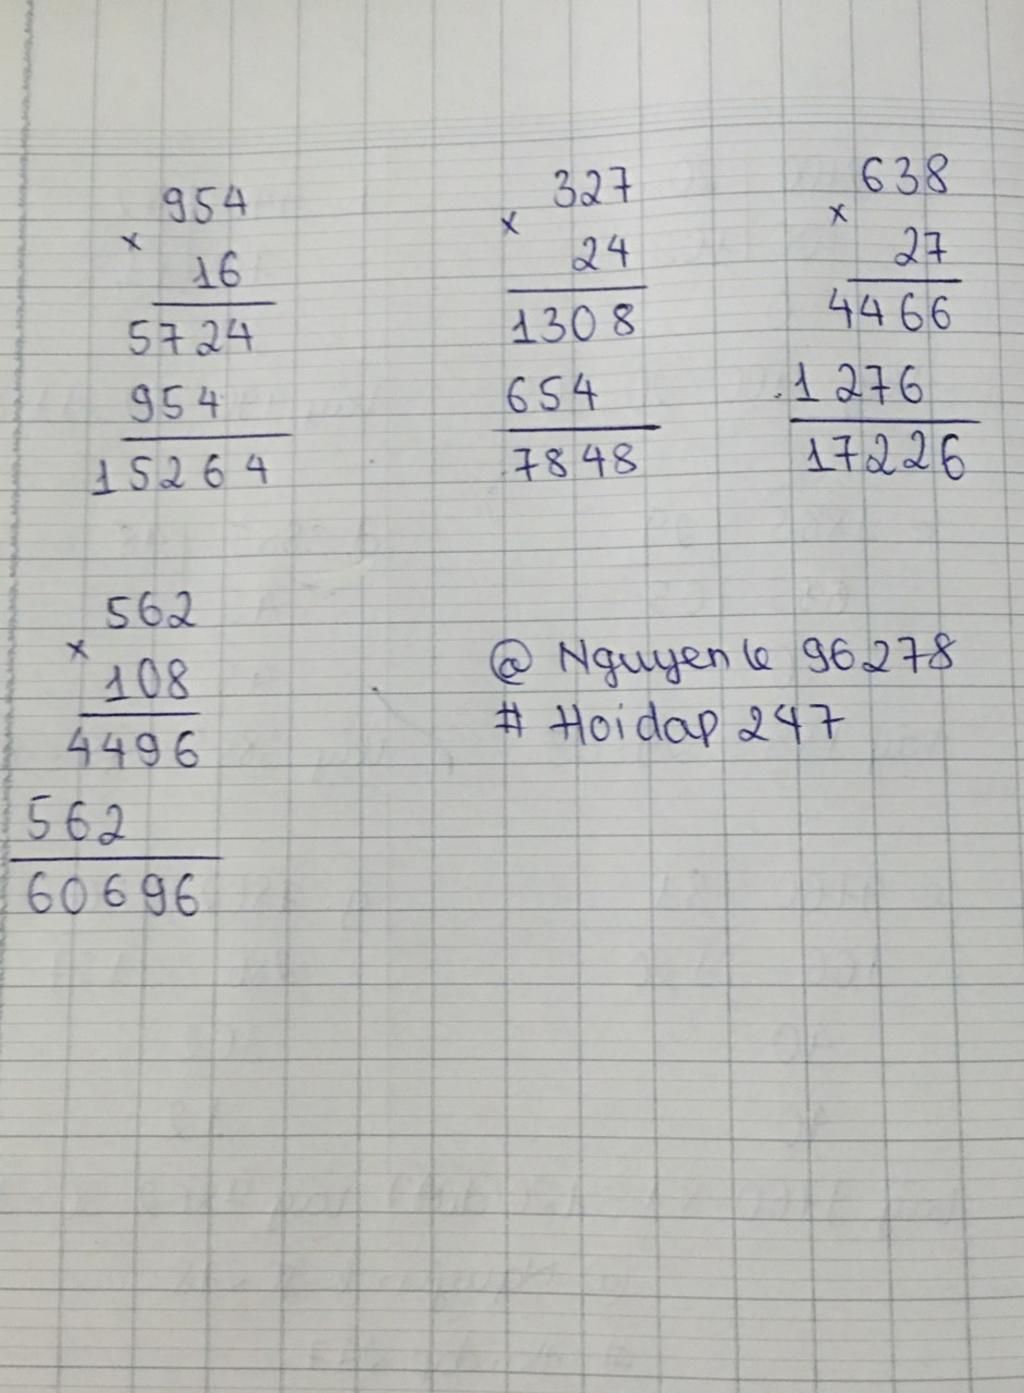 954
×
16
5724
954
15264
327
×
24
1308
654
7848
638
×
27
4466
1276
17226
562
×
108
4496
562
60696
@ Nguyen le 96278
# Hoidap 247